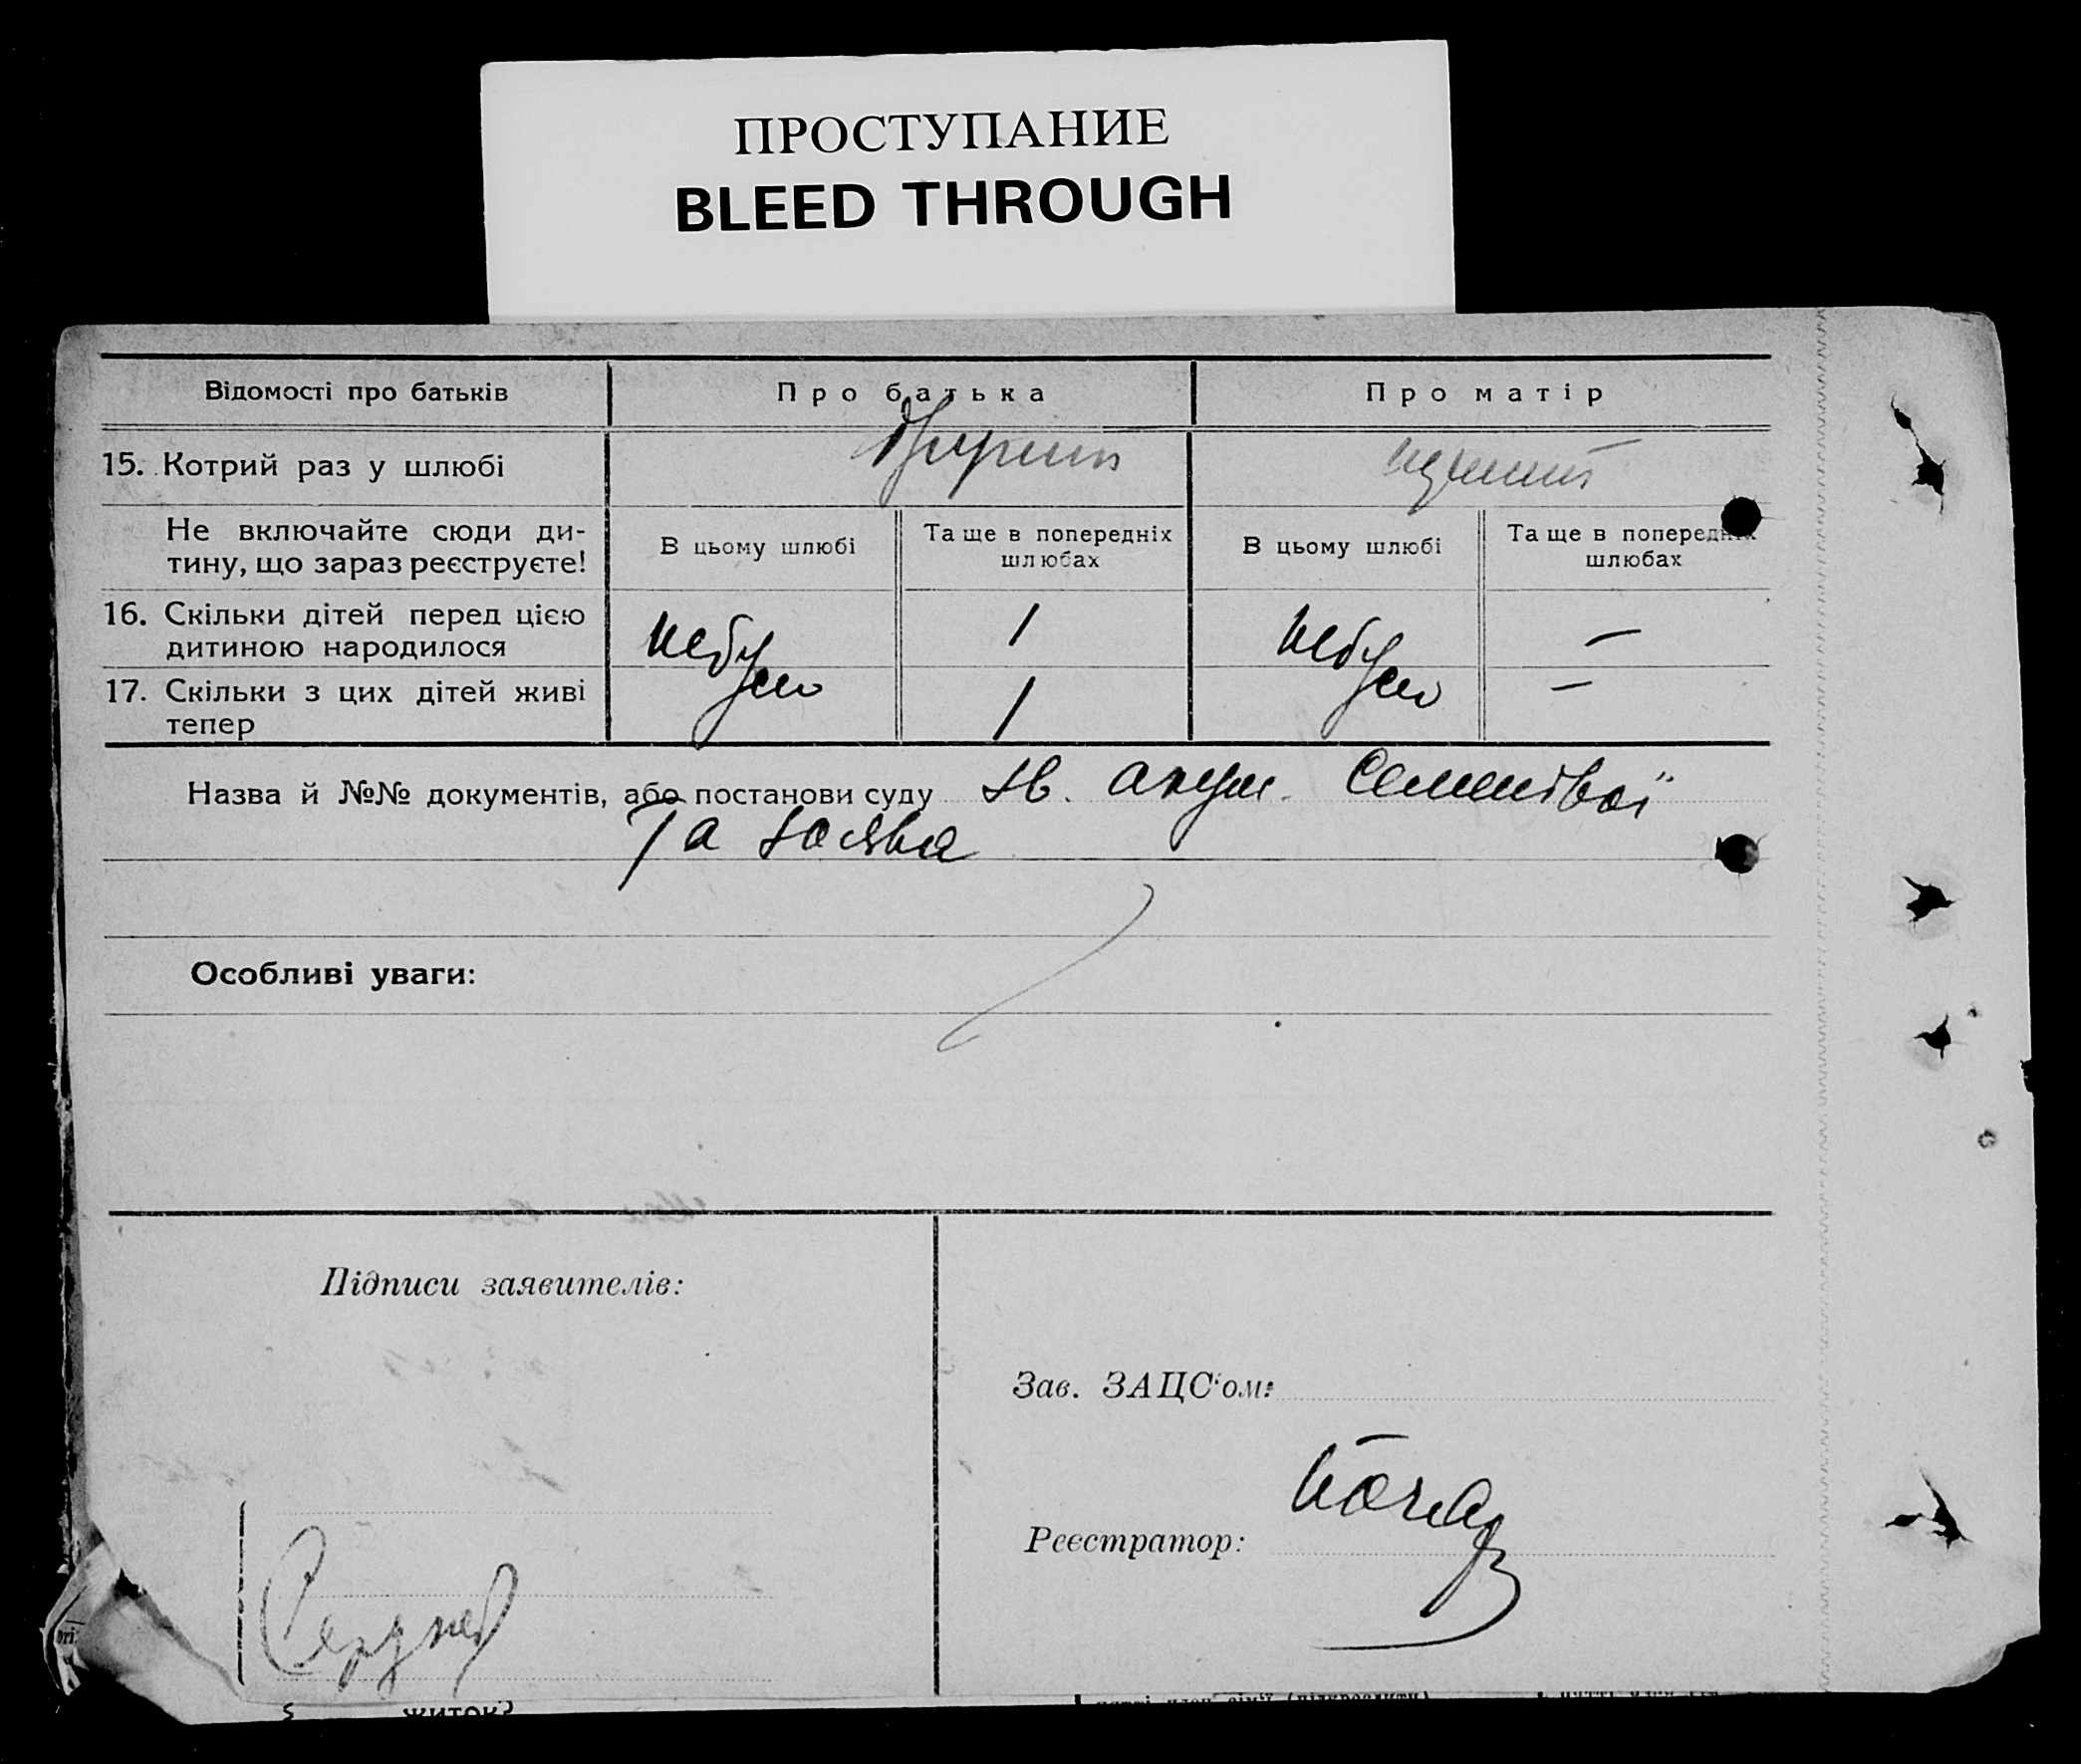 ПРОСТУПАНИЕ
BLEED THROUGH
Відомості про батьків
Про батька
Про матір
15. Котрий раз у шлюбі
Не включайте сюди ди-
тину, що зараз реєструєте!
В цьому шлюбі
Та ще в попередніх
шлюбах
В цьому шлюбі
Та ще в попередніх
шлюбах
16. Скільки дітей перед цією
дитиною народилося
небуло
1
небуло
—
17. Скільки з цих дітей живі
тепер
1
—
Назва й №№ документів, або постанови суду зв. акуш. Семенівої
та заява
Особливі уваги:
Підписи заявителів:
Зав. ЗАЦС'ом:
Реєстратор:
житок?